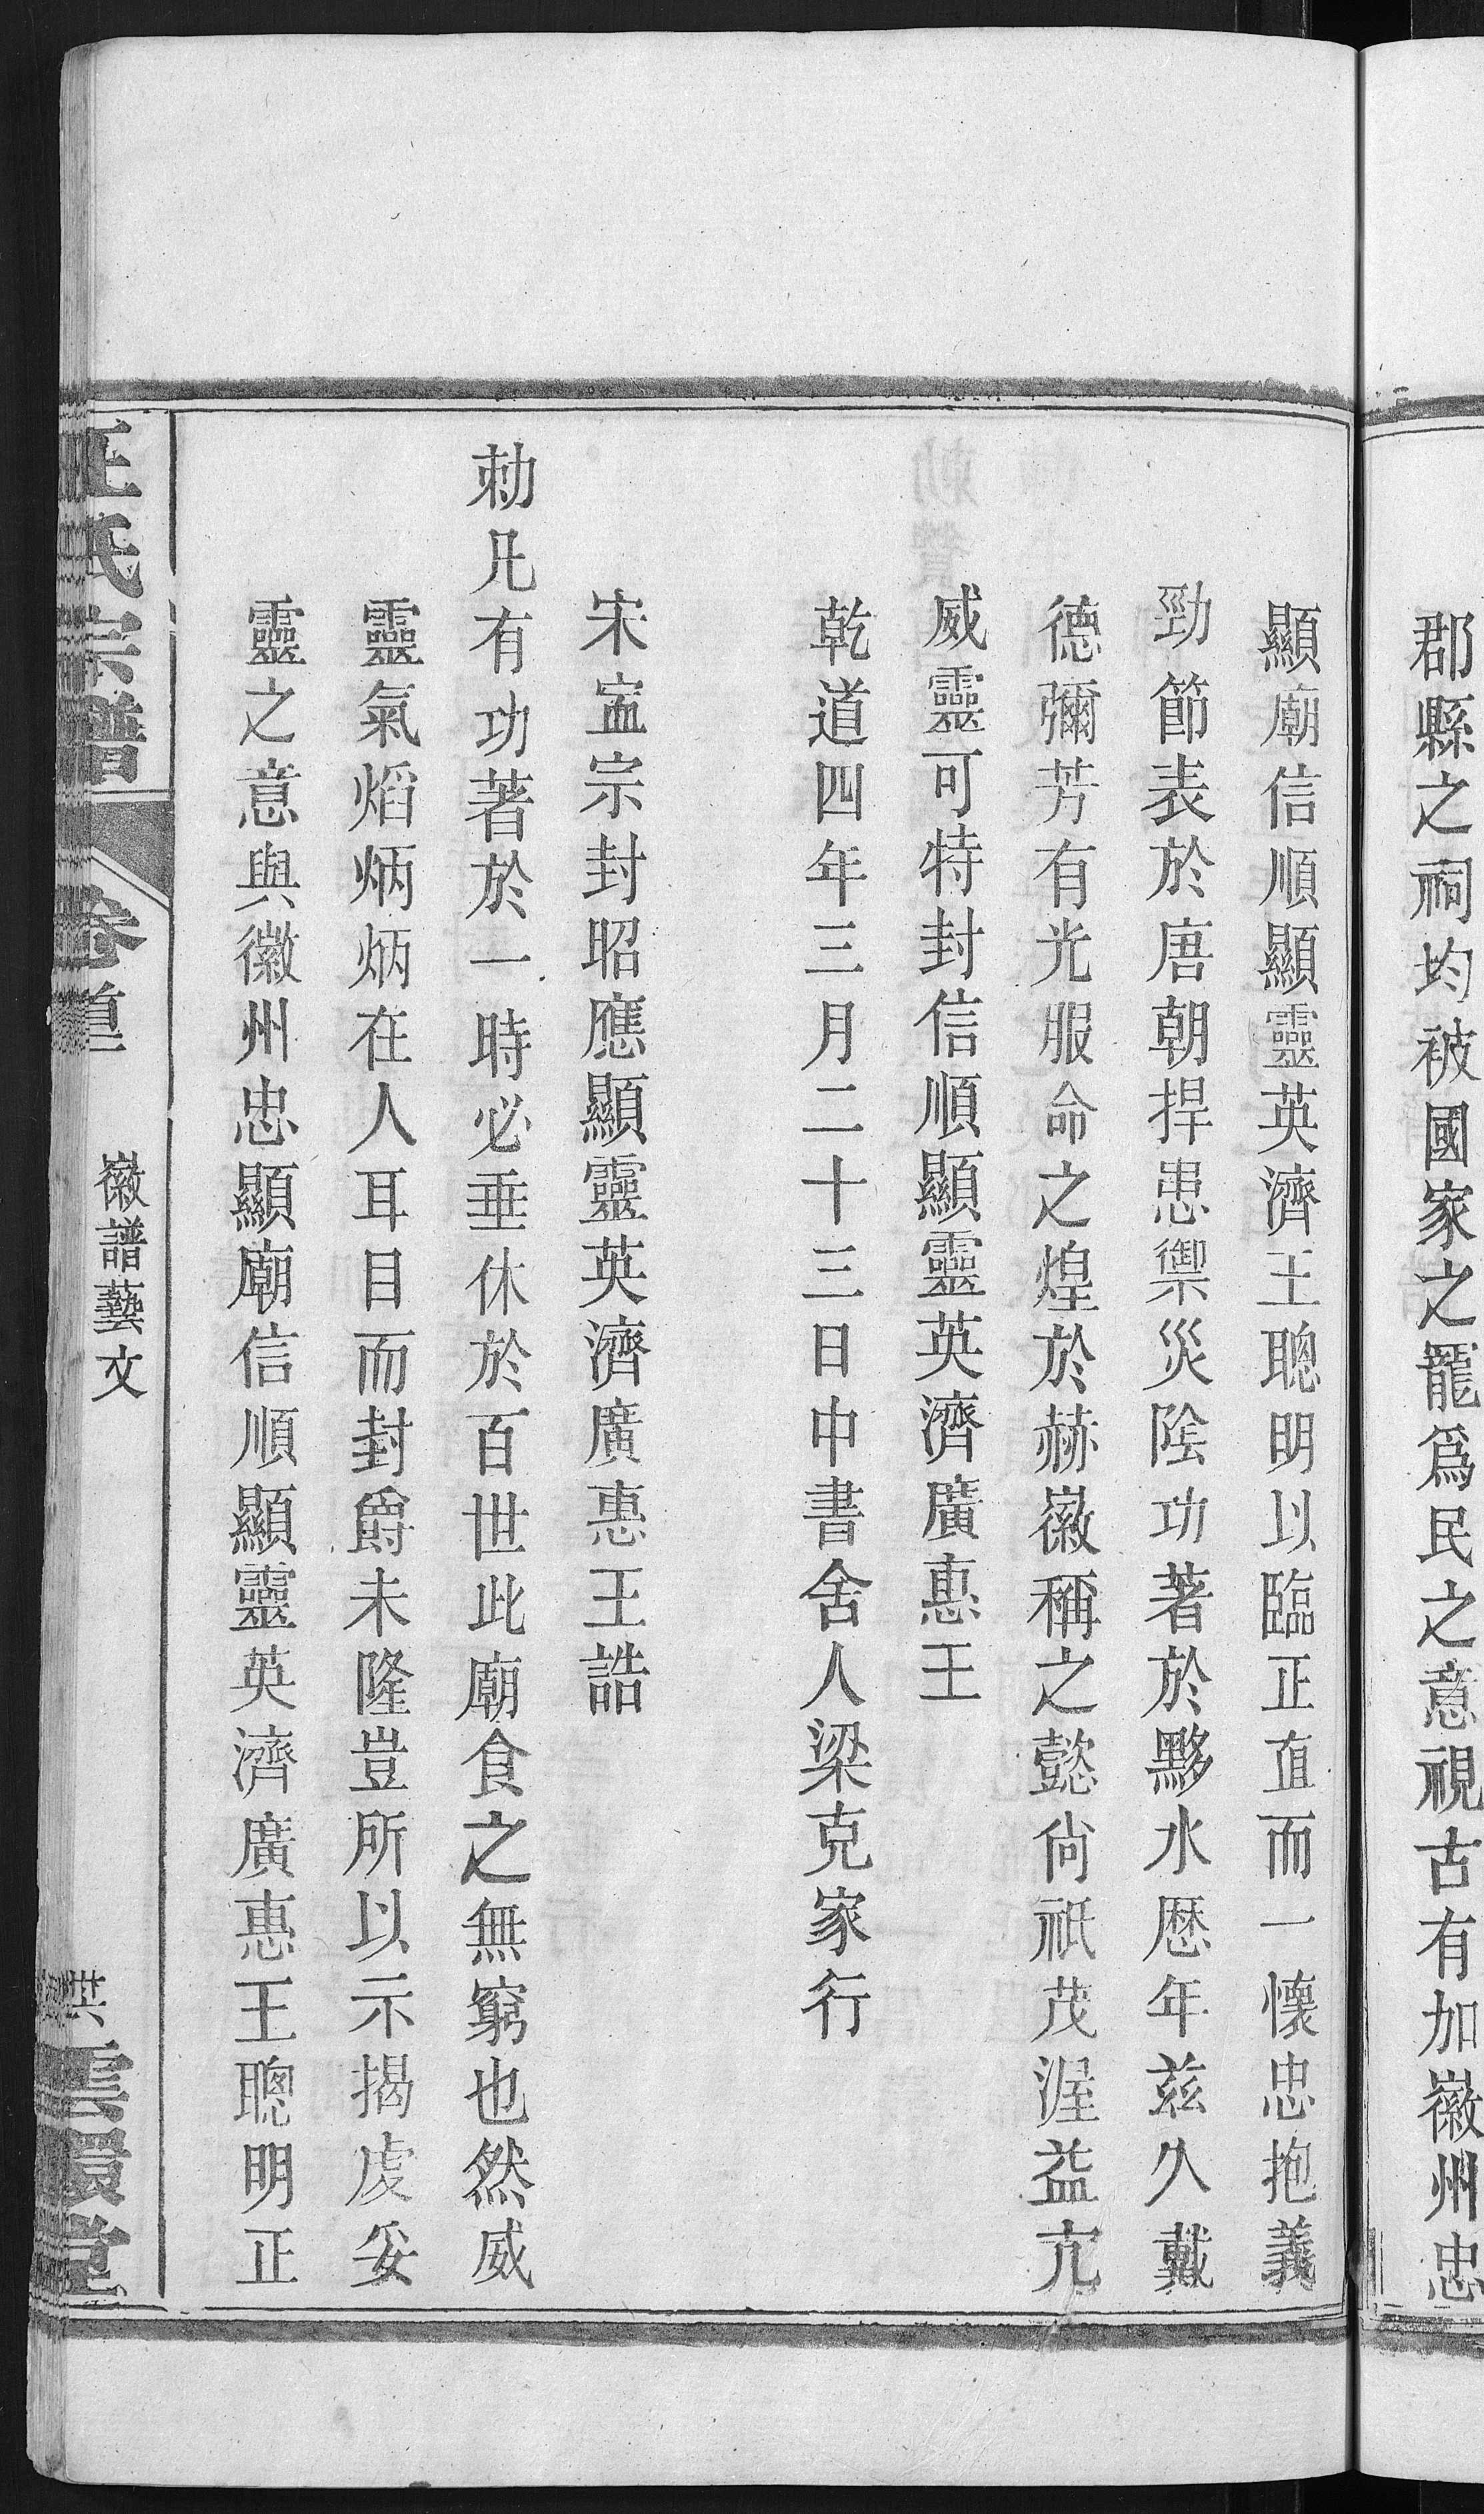 郡縣之祠均被國家之寵爲民之意視古有加徽州忠
顯廟信順顯靈英濟王聰明以臨正直而一懷忠抱義
勁節表於唐朝捍患禦災陰功著於黟水歷年茲久戴
德彌芳有光服命之煌於赫徽稱之懿尙祇茂渥益亢
威靈可特封信順顯靈英濟廣惠王
乾道四年三月二十三日中書舍人梁克家行
宋寍宗封昭應顯靈英濟廣惠王誥
勅凡有功著於一時必垂休於百世此廟食之無窮也然威
靈氣熖炳炳在人耳目而封爵未隆豈所以示揭虔妥
靈之意與徽州忠顯廟信順顯靈英濟廣惠王聰明正
汪氏宗譜
卷首
徽譜藝文
雲環堂